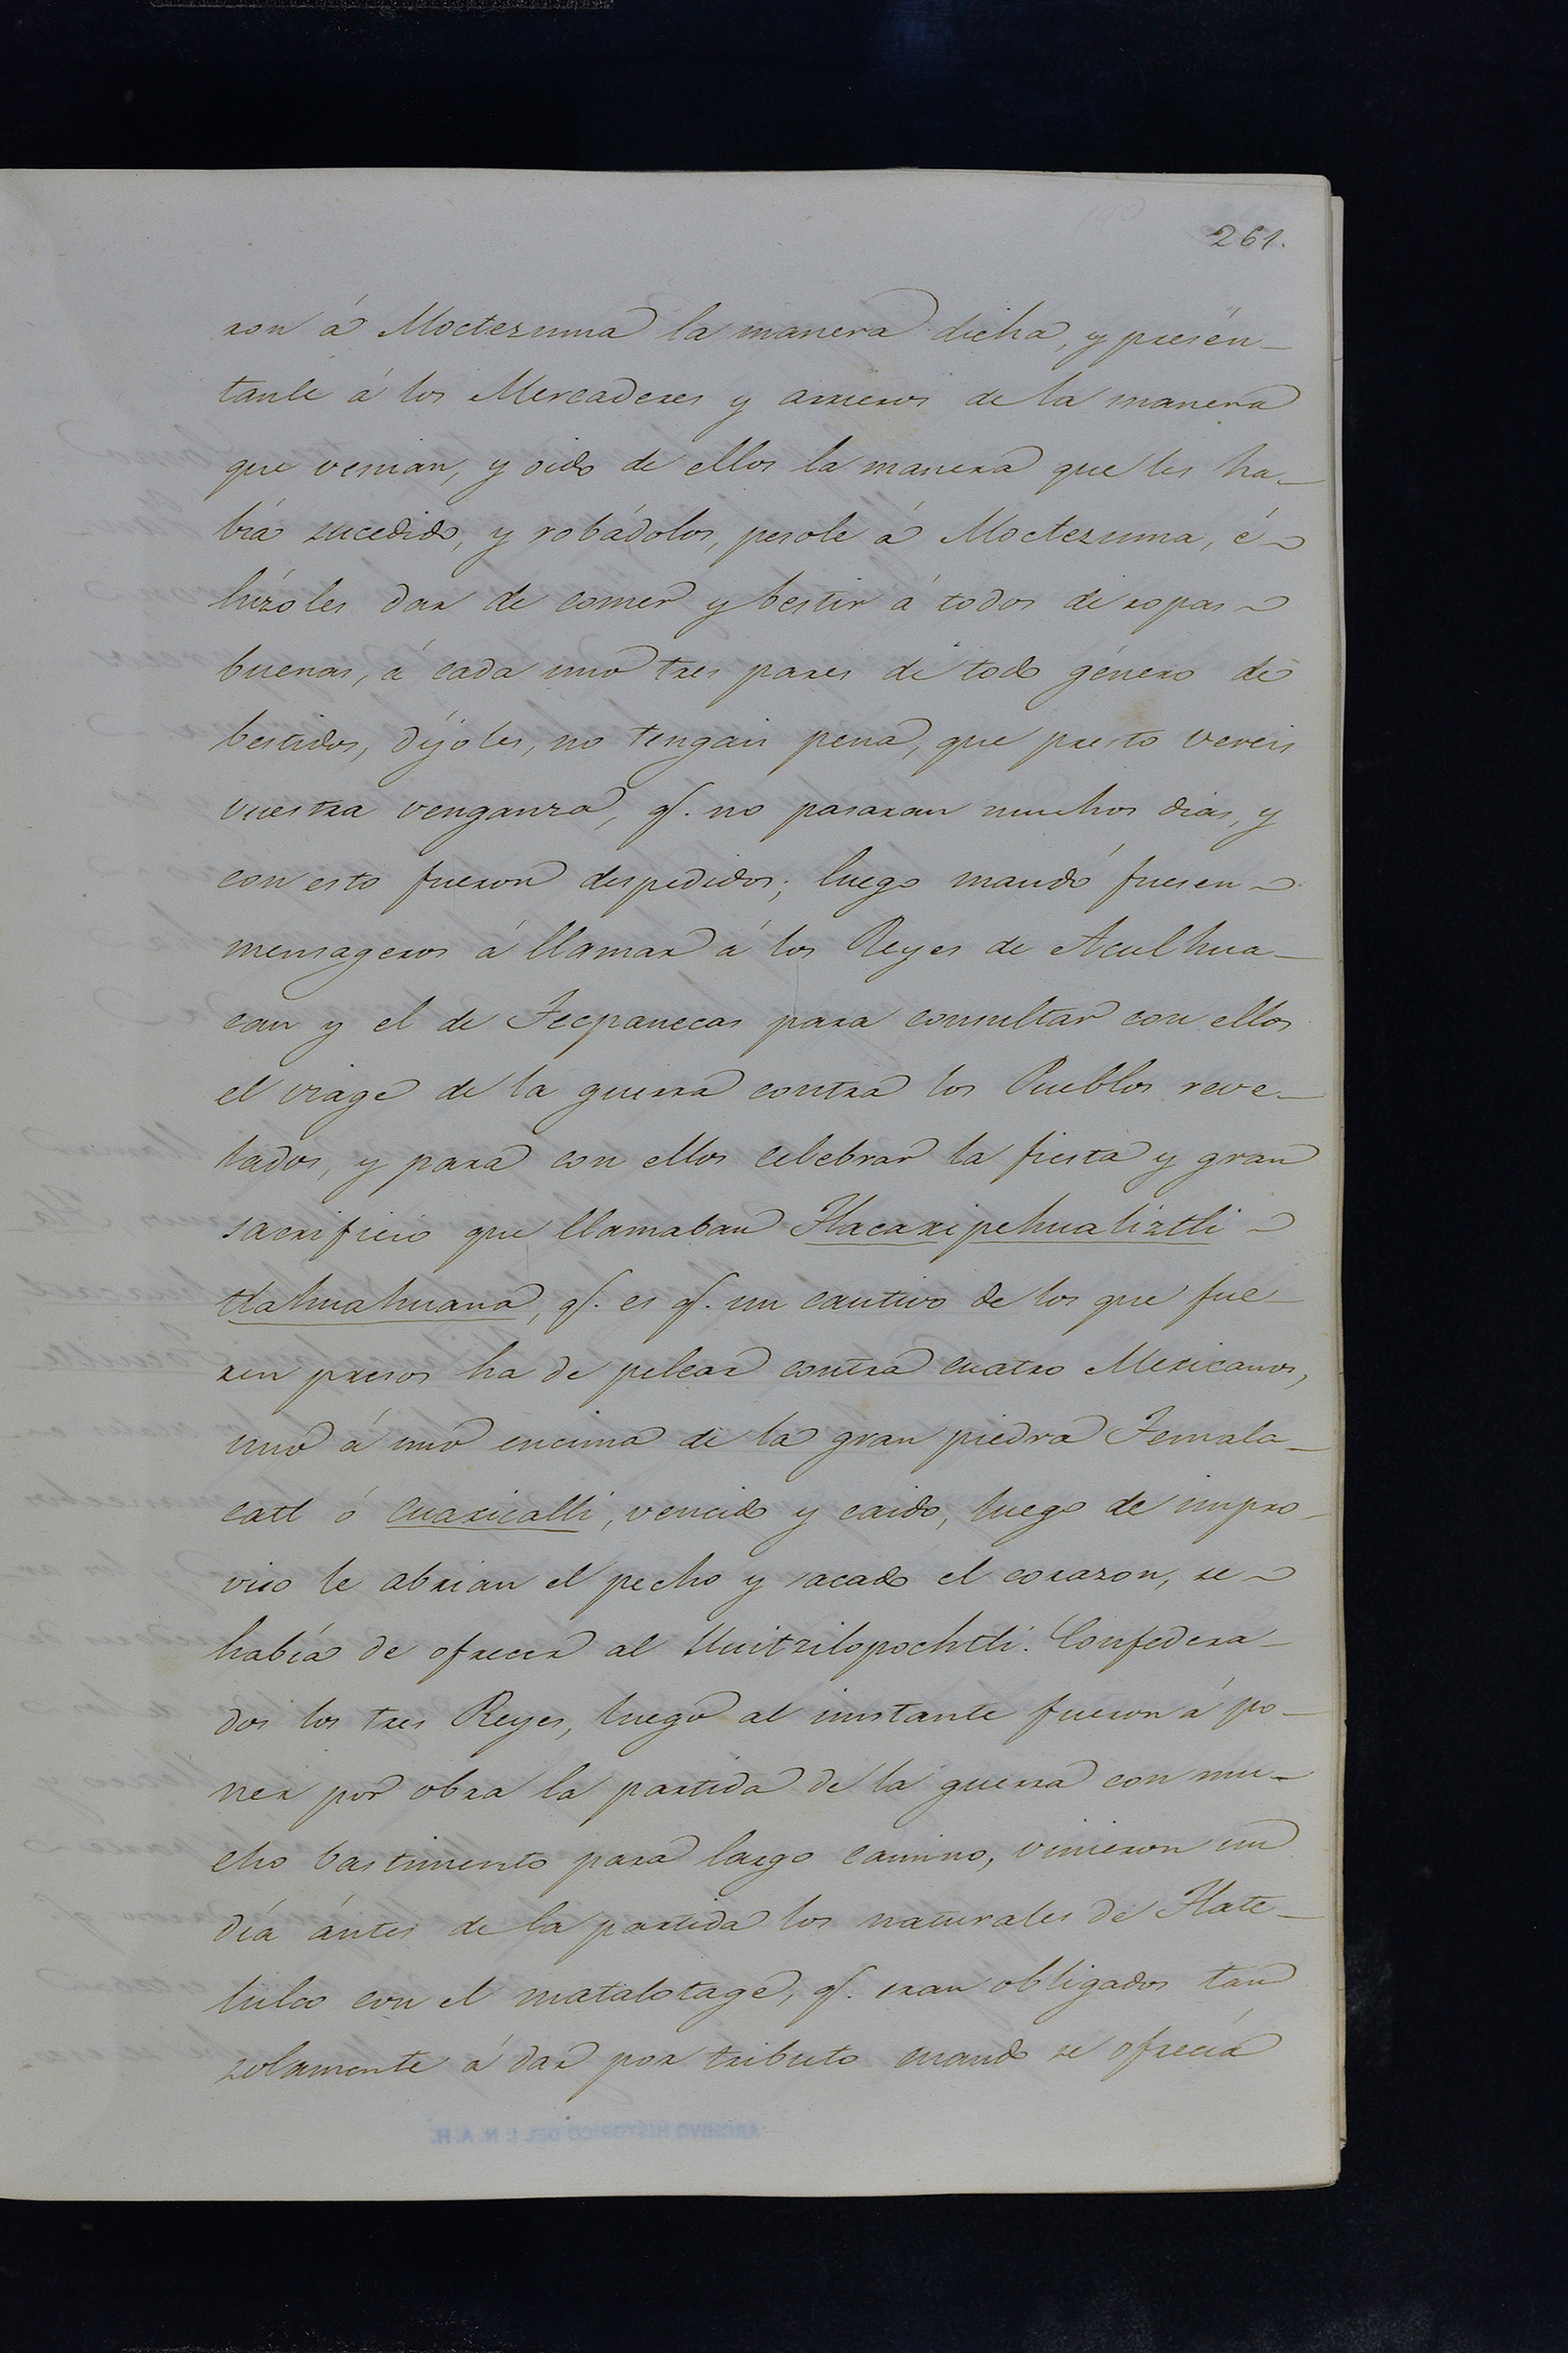 261.
ron á Moctezuma la manera dicha, y presén-
tanle á los Mercaderes y arrieros de la manera
que venian, y oido de ellos la manera que les ha-
bía sucedido, y robádolos, pesole á Moctezuma, é
hízoles dar de comer y bestir á todos de ropas
buenas, á cada uno tres pares de todo género de
bestidos, díjoles, no tengais pena, que presto vereis
vuestra venganza, q. no pasaran muchos dias, y
con esto fueron despedidos; luego mandó fuesen
mensageros á llamar á los Reyes de Aculhua-
can y el de Tecpanecas para consultar con ellos
el viage de la guerra contra los Pueblos reve-
lados, y para con ellos celebrar la fiesta y gran
sacrificio que llamaban Tlacaxipehualiztli
tlahuahuana, q. es q. un cautivo de los que fue-
ren presos ha de pelear contra cuatro Mexicanos,
uno á uno encima de la gran piedra Temala-
catl ó Cuaxicalli, vencido y caido, luego de impro-
viso le abrian el pecho y sacado el corazon, se
había de ofrecer al Huitzilopochtli. Confedera-
dos los tres Reyes, luego al instante fueron á po-
ner por obra la partida de la guerra con mu-
cho bastimento para largo camino, vinieron un
día ántes de la partida los naturales de Tlate-
lulco con el matalotage, q. eran obligados tan
solamente á dar por tributo cuando se ofrecía
ARCHIVO HISTORICO DEL I. N. A. H.